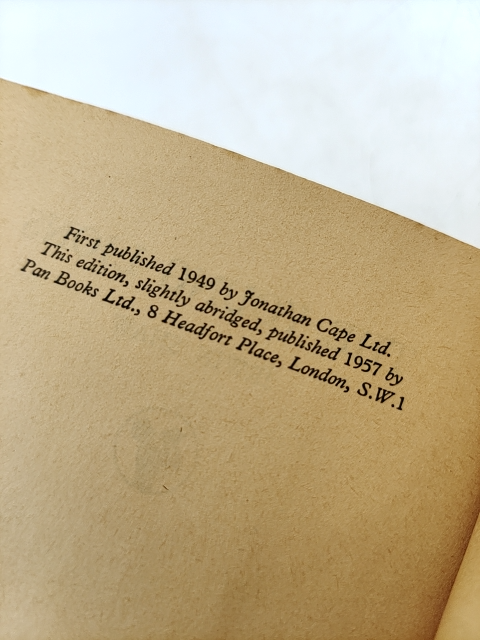 First published 1949 by Jonathan Cape Ltd.
This edition, slightly abridged, published 1957 by
Pan Books Ltd., 8 Headfort Place, London, S.W.1